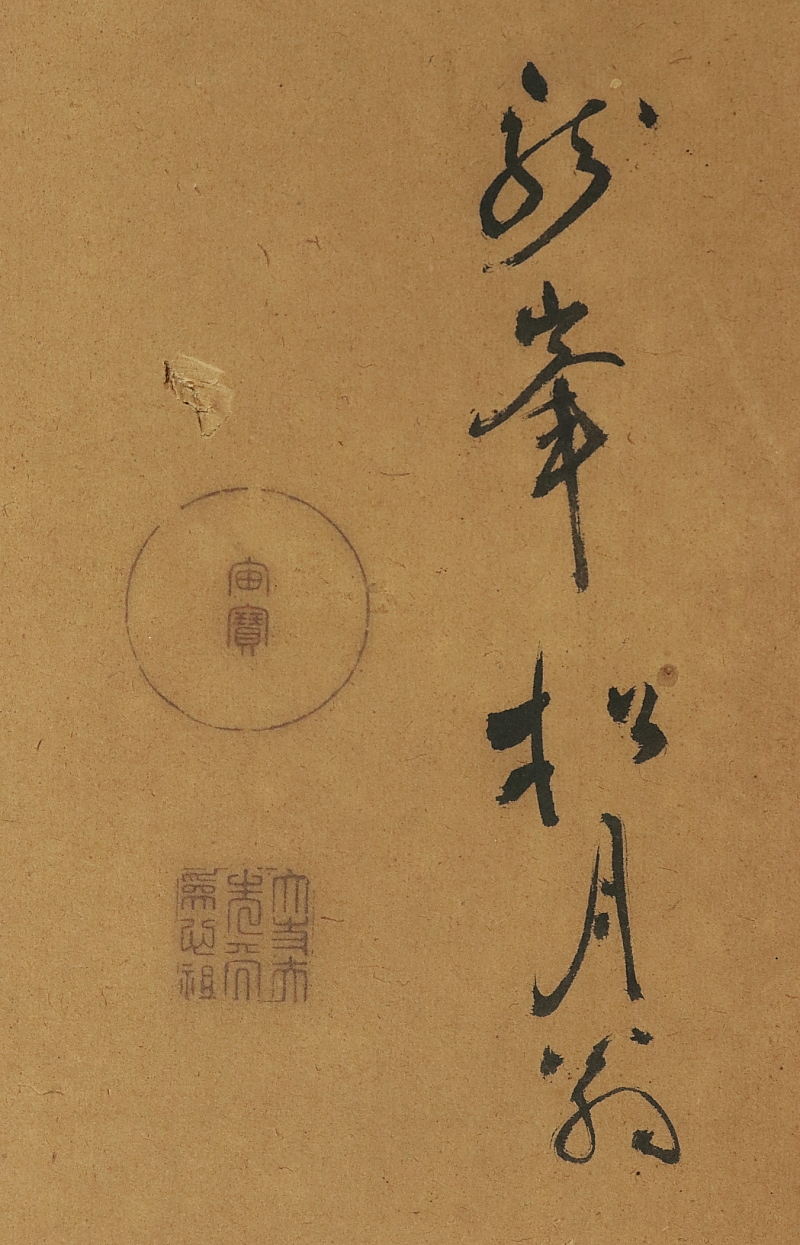 龍峯松月翁
宙寶